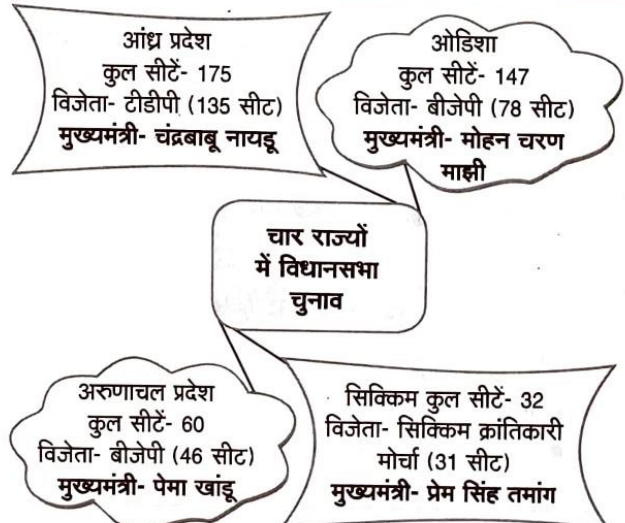 आंध्र प्रदेश
कुल सीटें- 175
विजेता- टीडीपी (135 सीट)
मुख्यमंत्री- चंद्रबाबू नायडू
ओडिशा
कुल सीटें- 147
विजेता- बीजेपी (78 सीट)
मुख्यमंत्री- मोहन चरण
माझी
चार राज्यों
में विधानसभा
चुनाव
अरुणाचल प्रदेश
कुल सीटें- 60
विजेता- बीजेपी (46 सीट)
मुख्यमंत्री- पेमा खांडू
सिक्किम कुल सीटें- 32
विजेता- सिक्किम क्रांतिकारी
मोर्चा (31 सीट)
मुख्यमंत्री- प्रेम सिंह तमांग